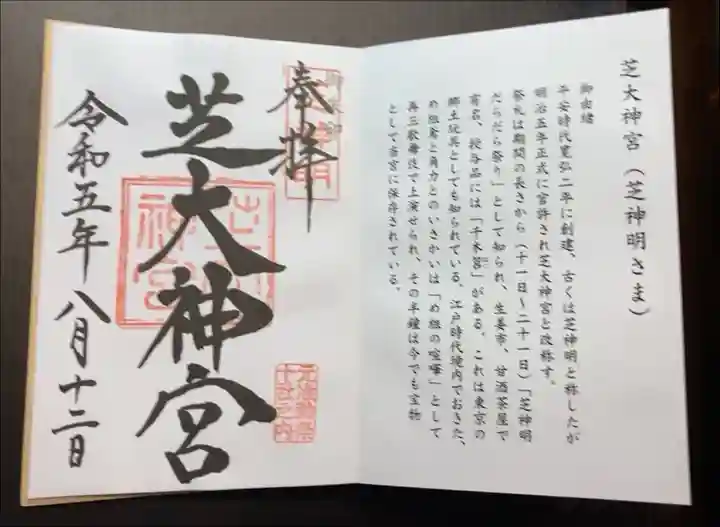 芝大神宮（芝神明さま）
御由緒
平安時代寛弘二年に創建、古くは芝神明と称したが
明治五年正式に官許され芝大神宮と改称す。
祭礼は期間の長さから（十一日～二十一日）「芝神明
だらだら祭り」として知られ、生姜市、甘酒茶屋で
有名、授与品には「千木筥」がある。これは東京の
郷土玩具としても知られている。江戸時代境内でおきた、
め組鳶と角力とのいさかいは「め組の喧嘩」として
再三歌舞伎で上演せられ、その半鐘は今でも宝物
として当宮に保存されている。
奉拝
芝大神宮
令和五年八月十二日
芝大
神宮
元准勅祭
十社之内